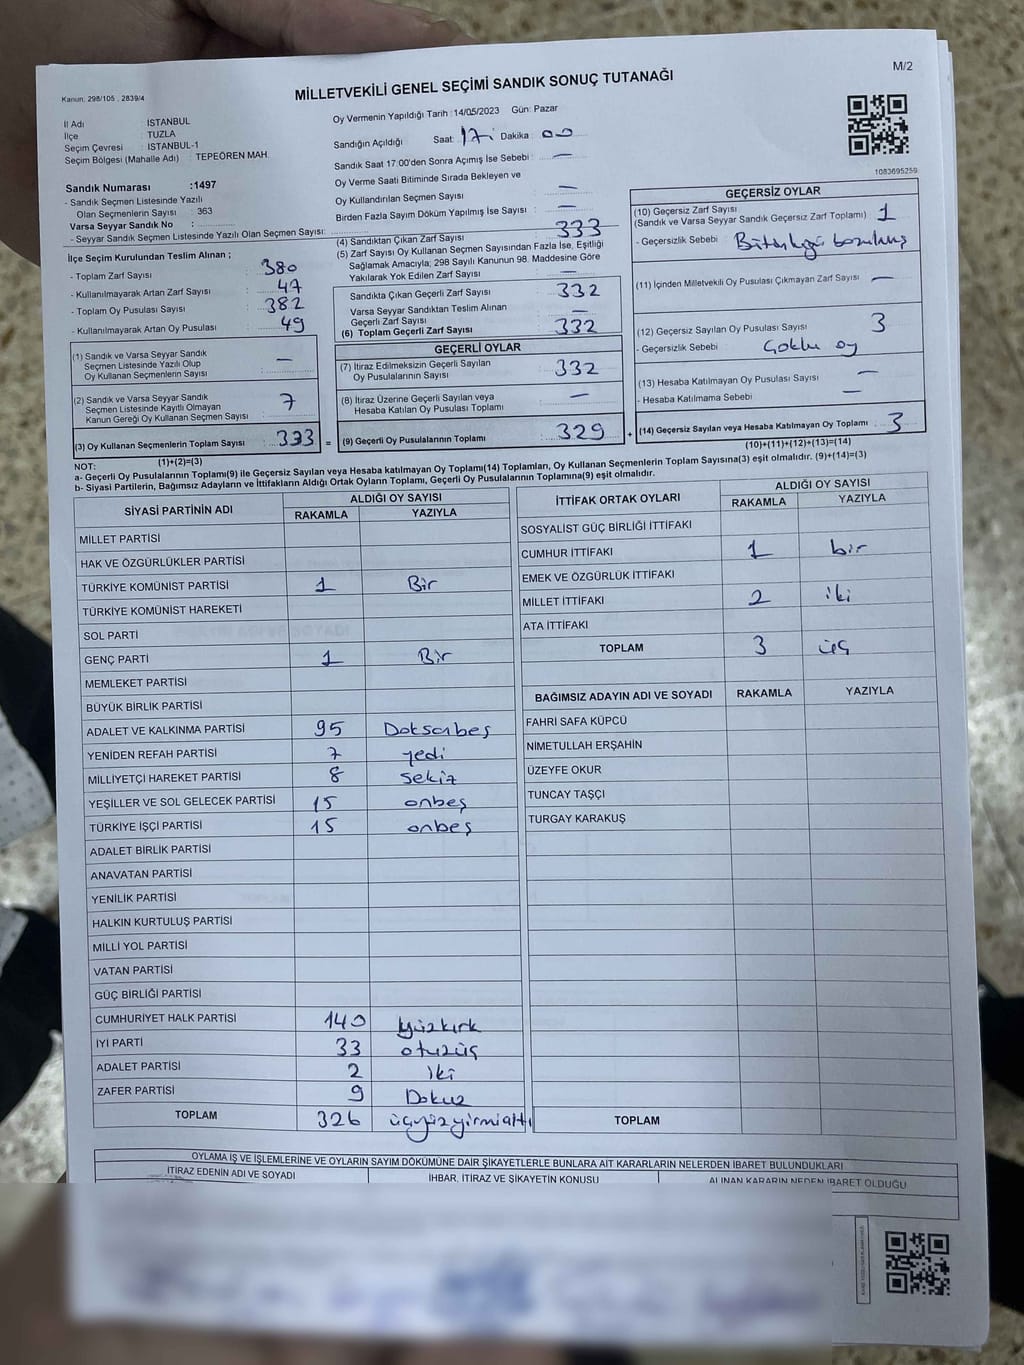 M/2
Kanun: 298/105 , 2839/4
MİLLETVEKİLİ GENEL SEÇİMİ SANDIK SONUÇ TUTANAĞI
İl Adı : İSTANBUL
İlçe : TUZLA
Seçim Çevresi : İSTANBUL-1
Seçim Bölgesi (Mahalle Adı) : TEPEÖREN MAH.
Sandık Numarası :1497
- Sandık Seçmen Listesinde Yazılı
Olan Seçmenlerin Sayısı : 363
Varsa Seyyar Sandık No :
- Seyyar Sandık Seçmen Listesinde Yazılı Olan Seçmen Sayısı:
İlçe Seçim Kurulundan Teslim Alınan ;
- Toplam Zarf Sayısı : 380
- Kullanılmayarak Artan Zarf Sayısı : 47
- Toplam Oy Pusulası Sayısı : 382
- Kullanılmayarak Artan Oy Pusulası : 49
(1) Sandık ve Varsa Seyyar Sandık
Seçmen Listesinde Yazılı Olup
Oy Kullanan Seçmenlerin Sayısı : —
(2) Sandık ve Varsa Seyyar Sandık
Seçmen Listesinde Kayıtlı Olmayan
Kanun Gereği Oy Kullanan Seçmen Sayısı : 7
(3) Oy Kullanan Seçmenlerin Toplam Sayısı : 333
(1)+(2)=(3)
Oy Vermenin Yapıldığı Tarih :14/05/2023 Gün: Pazar
Sandığın Açıldığı Saat: 17: Dakika 00
Sandık Saat 17:00'den Sonra Açılmış İse Sebebi : —
Oy Verme Saati Bitiminde Sırada Bekleyen ve
Oy Kullandırılan Seçmen Sayısı : —
Birden Fazla Sayım Döküm Yapılmış İse Sayısı : —
(4) Sandıktan Çıkan Zarf Sayısı : 333
(5) Zarf Sayısı Oy Kullanan Seçmen Sayısından Fazla İse, Eşitliği
Sağlamak Amacıyla; 298 Sayılı Kanunun 98. Maddesine Göre
Yakılarak Yok Edilen Zarf Sayısı : —
Sandıkta Çıkan Geçerli Zarf Sayısı : 332
Varsa Seyyar Sandıktan Teslim Alınan
Geçerli Zarf Sayısı : —
(6) Toplam Geçerli Zarf Sayısı : 332
GEÇERLİ OYLAR
(7) İtiraz Edilmeksizin Geçerli Sayılan
Oy Pusulalarının Sayısı : 332
(8) İtiraz Üzerine Geçerli Sayılan veya
Hesaba Katılan Oy Pusulası Toplamı : —
= (9) Geçerli Oy Pusulalarının Toplamı : 329
1083695259
GEÇERSİZ OYLAR
(10) Geçersiz Zarf Sayısı
(Sandık ve Varsa Seyyar Sandık Geçersiz Zarf Toplamı) : 1
- Geçersizlik Sebebi : Bütünlüğü bozulmuş
(11) İçinden Milletvekili Oy Pusulası Çıkmayan Zarf Sayısı : —
(12) Geçersiz Sayılan Oy Pusulası Sayısı : 3
- Geçersizlik Sebebi : Çoklu oy
(13) Hesaba Katılmayan Oy Pusulası Sayısı : —
- Hesaba Katılmama Sebebi : —
+ (14) Geçersiz Sayılan veya Hesaba Katılmayan Oy Toplamı : 3
(10)+(11)+(12)+(13)=(14)
NOT:
a- Geçerli Oy Pusulaları Toplamı(9) ile Geçersiz Sayılan veya Hesaba katılmayan Oy Toplamı(14) Toplamları, Oy Kullanan Seçmenlerin Toplam Sayısına(3) eşit olmalıdır. (9)+(14)=(3)
b- Siyasi Partilerin, Bağımsız Adayların ve İttifakların Aldığı Ortak Oyların Toplamı, Geçerli Oy Pusulalarının Toplamına(9) eşit olmalıdır.
SİYASİ PARTİNİN ADI ALDIĞI OY SAYISI
RAKAMLA YAZIYLA
MİLLET PARTİSİ
HAK VE ÖZGÜRLÜKLER PARTİSİ
TÜRKİYE KOMÜNİST PARTİSİ 1 Bir
TÜRKİYE KOMÜNİST HAREKETİ
SOL PARTİ
GENÇ PARTİ 1 Bir
MEMLEKET PARTİSİ
BÜYÜK BİRLİK PARTİSİ
ADALET VE KALKINMA PARTİSİ 95 Doksanbeş
YENİDEN REFAH PARTİSİ 7 yedi
MİLLİYETÇİ HAREKET PARTİSİ 8 sekiz
YEŞİLLER VE SOL GELECEK PARTİSİ 15 onbeş
TÜRKİYE İŞÇİ PARTİSİ 15 onbeş
ADALET BİRLİK PARTİSİ
ANAVATAN PARTİSİ
YENİLİK PARTİSİ
HALKIN KURTULUŞ PARTİSİ
MİLLİ YOL PARTİSİ
VATAN PARTİSİ
GÜÇ BİRLİĞİ PARTİSİ
CUMHURİYET HALK PARTİSİ 140 yüzkırk
İYİ PARTİ 33 otuzüç
ADALET PARTİSİ 2 iki
ZAFER PARTİSİ 9 Dokuz
TOPLAM 326 üçyüzyirmialtı
İTTİFAK ORTAK OYLARI ALDIĞI OY SAYISI
RAKAMLA YAZIYLA
SOSYALİST GÜÇ BİRLİĞİ İTTİFAKI
CUMHUR İTTİFAKI 1 bir
EMEK VE ÖZGÜRLÜK İTTİFAKI
MİLLET İTTİFAKI 2 iki
ATA İTTİFAKI
TOPLAM 3 üç
BAĞIMSIZ ADAYIN ADI VE SOYADI RAKAMLA YAZIYLA
FAHRİ SAFA KÜPCÜ
NİMETULLAH ERŞAHİN
ÜZEYFE OKUR
TUNCAY TAŞÇI
TURGAY KARAKUŞ
TOPLAM
OYLAMA İŞ VE İŞLEMLERİNE VE OYLARIN SAYIM DÖKÜMÜNE DAİR ŞİKAYETLERLE BUNLARA AİT KARARLARIN NELERDEN İBARET BULUNDUKLARI
İTİRAZ EDENİN ADI VE SOYADI İHBAR, İTİRAZ VE ŞİKAYETİN KONUSU ALINAN KARARIN NEDEN İBARET OLDUĞU